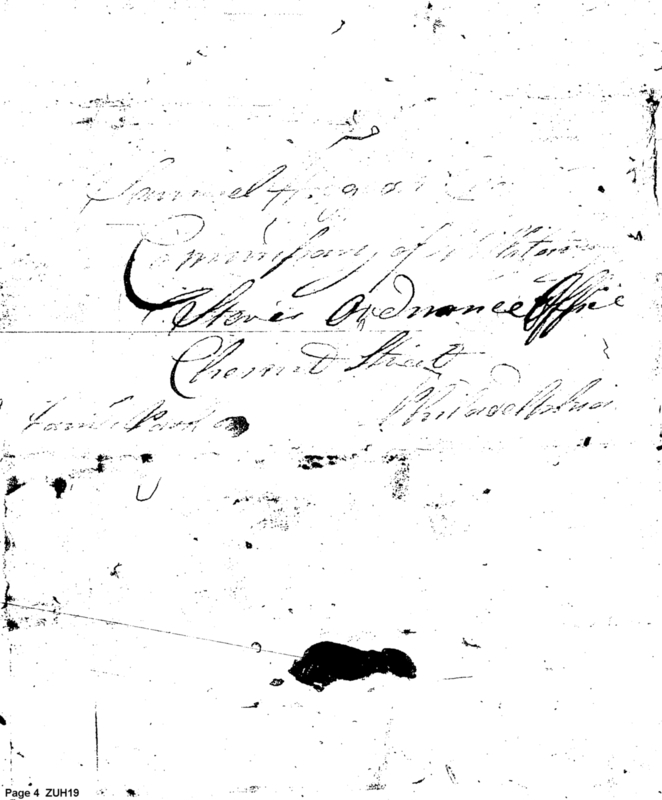 Samuel Hodgdon Esqr
Commissary of Military
Stores Ordnance Office
Chesnut Street
Philadelphia
Page 4 ZUH19